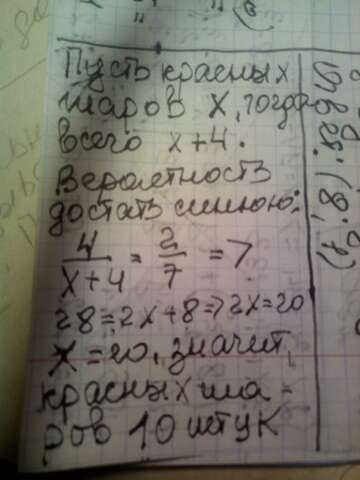 Пусть красных
шаров x, тогда
всего x+4.
Вероятность
достать синюю:
4/(x+4) = 2/7 =>
28=2x+8=>2x=20
x=20, значит,
красных ша-
ров 10 штук